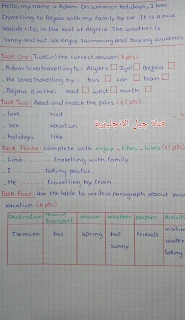 Hello, my name is Adam. On summer holidays, I love
travelling to Bejaia with my family by car. It is a nice
seaside city, in the east of Algeria. The weather is
sunny and hot. We enjoy swimming and buying souvenirs.
Task One: Tick(✓) the correct answer (3pts)
_ Adam loves travelling to: Algiers □ Jijel □ Bejaia □
_ He loves travelling by : bus □ car □ train □
_ Bejaia is in the: east □ west □ north □
Task Two: Read and match the pairs: (4pts)
love visit
sea vacation
holidays like
قناة جيل الانجليزية
Task Three: complete with enjoy - likes - loves
_ Lina ........ travelling with family.
_ I ........ taking photos
_ He ........ travelling by train
Task Four: Use the table to write a paragraph about your
vacation (6pts)
Destination Means of Transport season weather partner Activities
Tlemcen bus spring hot sunny friends